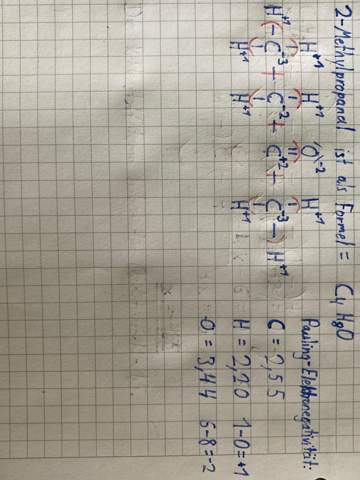 2-Methylpropanol ist als Formel = C4H8O
H+1 H+1 O-2 H+1
H+1 - C-3 - C-2 - C+2 - C-3 - H+1
H+1 H+1 H+1
Pauling-Elektronegativität:
C = 2,55
H = 2,20 1-0=+1
O = 3,44 6-8=-2